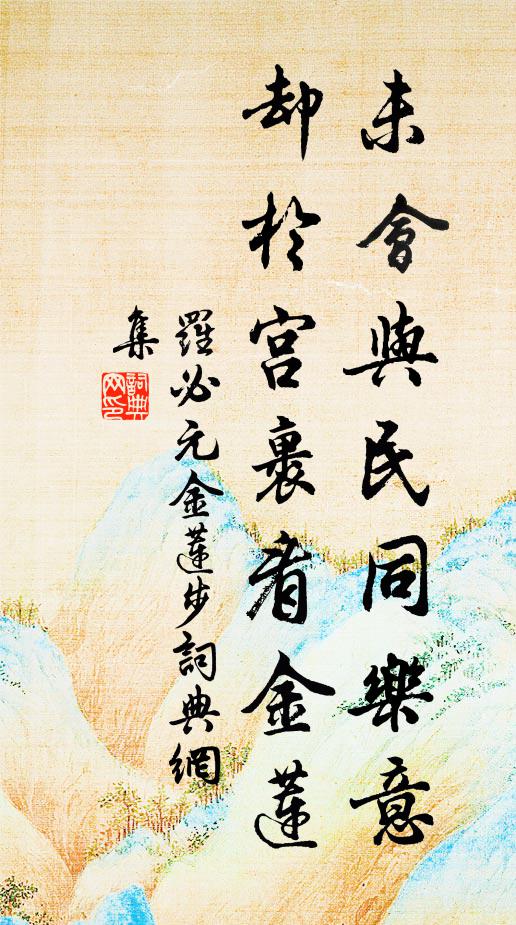 未會與民同樂意
却於宮裹看金蓮
羅必元金蓮步詞典網
集
詞典
网印